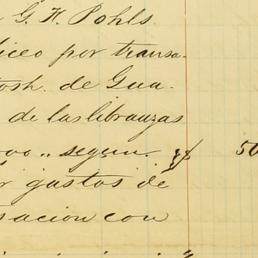 G. H. Pohls
iceo por transa-
tosh. de Gua.
de las libranzas
000.. segun. 50
r gastos de
sacion con